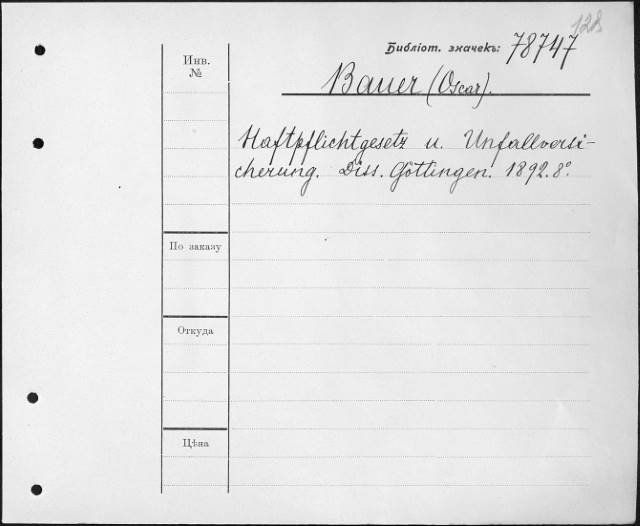 128
Библіот. значекъ: 78747
Инв.
№
Bauer (Oscar).
Haftpflichtgesetz u. Unfallversi-
cherung. Diss. Göttingen. 1892. 8°.
По заказу
Откуда
Цѣна